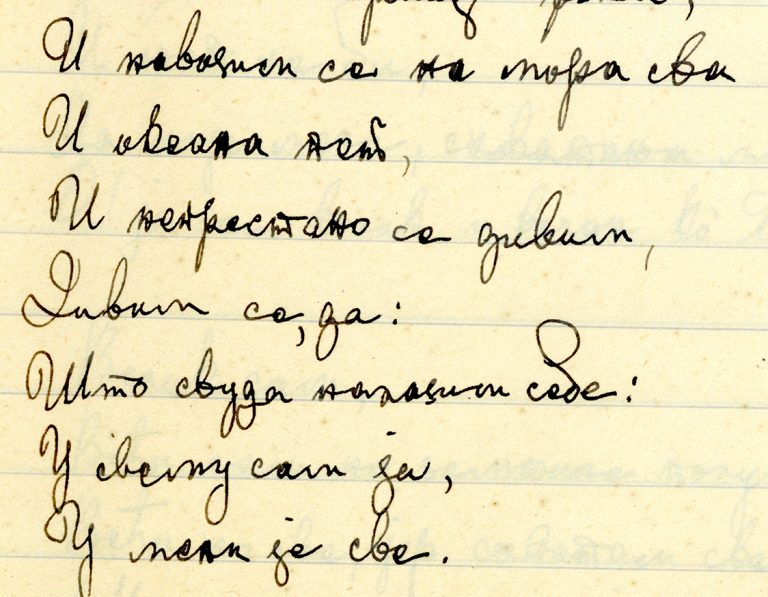 И навозим се на мора сва
И океана пет,
И непрестано се дивим,
Дивим се, да:
Што свуда налазим себе:
У свему сам ја,
У мени је све.